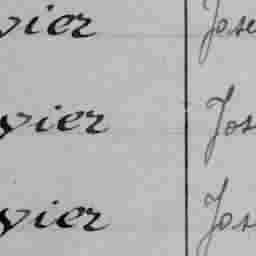 vier Jose
vier Jos
vier Jos